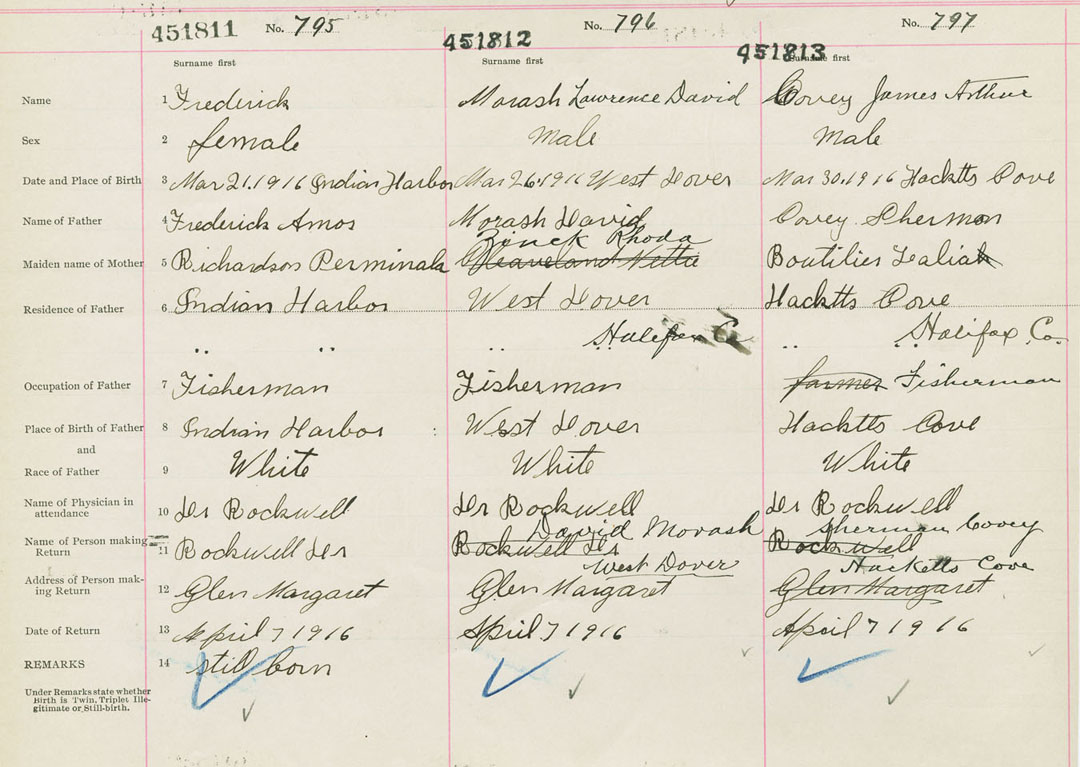 451811 No. 795 451812 No. 796 451813 No. 797
Surname first Surname first Surname first
Name 1 Frederick Morash Lawrence David Covey James Arthur
Sex 2 female Male Male
Date and Place of Birth 3 Mar 21.1916 Indian Harbor Mar 26.1916 West Dover Mar 30.1916 Hacktts Cove
Name of Father 4 Frederick Amos Morash David Covey Sherman
Zinck Rhoda
Maiden name of Mother 5 Richardson Perminala Cleaveland Hetta Boutilier Taliah
Residence of Father 6 Indian Harbor West Dover Hacktts Cove
" " " Halifax Co " Halifax Co.
Occupation of Father 7 Fisherman Fisherman farmer Fisherman
Place of Birth of Father 8 Indian Harbor : West Dover Hacktts Cove
and
Race of Father 9 White White White
Name of Physician in
attendance 10 Dr Rockwell Dr Rockwell Dr Rockwell
David Morash Sherman Covey
Name of Person making
Return 11 Rockwell Dr Rockwell Dr Rockwell
West Dover Hacketts Cove
Address of Person mak-
ing Return 12 Glen Margaret Glen Margaret Glen Margaret
Date of Return 13 April 7 1916 April 7 1916 April 7 1916
REMARKS 14 still born
Under Remarks state whether
Birth is Twin, Triplet Ille-
gitimate or Still-birth.